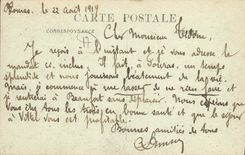 le 22 Août 1919
CARTE POSTALE
CORRESPONDANCE
Cher Monsieur
Je reçois à l'instant et je vous adresse le
mandat ci. inclus. Il fait, à un temps
splendide et nous jouissons béatement de la vie.
Mais, je commence à me lasser de ne rien faire et
je rentrerai à Beaufort sans déplaisir. Nous
vous chez tous les trois en bonne santé et que le séjour
à Vittel vous est profitable.
Bonnes amitiés de tous